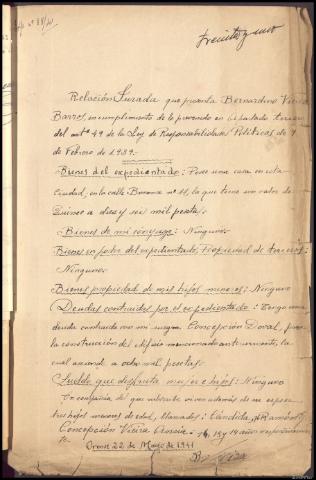 treinta y uno
Relación Jurada que presenta Bernardino Vieira
Barros, en cumplimiento de lo prevenido en el apartado tercero
del artº 49 de la Ley de Responsabilidades Políticas de 9
de Febrero de 1939.
Bienes del expedientado: Posee una casa en esta
Ciudad, en la calle nº 11, la que tiene un valor de
Quince a diez y seis mil pesetas.
Bienes de mi cónyuge: Ninguno.
Bienes en poder del expedientado, Propiedad de terceros:
Ninguno.
Bienes propiedad de mis hijos menores: Ninguno
Deudas contraidas por el expedientado: Tengo una
deuda contraida con mi suegra Concepción, para
la construcción del edificio mencionado anteriormente, la
cual asciende a ocho mil pesetas.
Sueldo que disfruta mujer e hijos: Ninguno
En compañía del que subscribe viven además de mi esposa
tres hijos menores de edad, llamados: Cándida, Ramón y
Concepción Vieira, 14, 18 y 19 años respectivamen-
te.
Orense 22 de Mayo de 1941